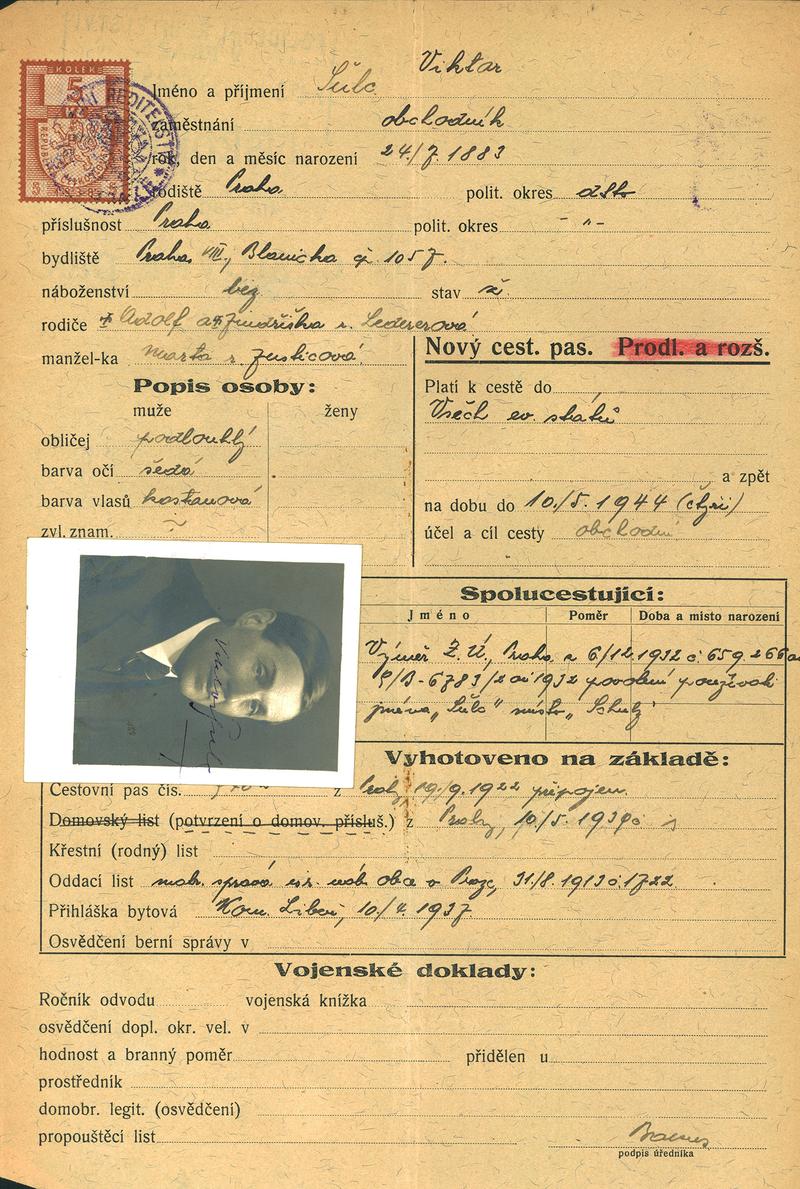 KOLEK
5
Viktor
Jméno a příjmení Šulc
zaměstnání obchodník
rok, den a měsíc narození 24./7. 1883
rodiště Praha polit. okres dtto
příslušnost Praha polit. okres - " -
bydliště Praha VII., Blanická čp. 1057.
náboženství bez stav ž.
rodiče † Adolf a † Jindřiška r. Ledererová
manžel-ka Marta r.
Nový cest. pas. Prodl. a rozš.
Popis osoby:
muže ženy
obličej podlouhlý
barva očí šedá
barva vlasů kaštanová
zvl. znam. ~
Platí k cestě do
Všech ev. států
a zpět
na dobu do 10./5. 1944 (čtyři)
účel a cíl cesty obchodní
Spolucestující:
Jméno Poměr Doba a místo narození
Výměr Z. Ú., Praha z 6/12. 1932 č. 659.266 ai
9/B-6783/2 ai 1932 povolení používati
jména „Šulc" místo „Schulz"
Viktor Šulc
Vyhotoveno na základě:
Cestovní pas čís. z Prahy, 19./9. 1922 připojen.
Domovský list (potvrzení o domov. přísluš.) z Prahy, 10/5. 1939 č.
Křestní (rodný) list
Oddací list matr. správa isr. náb. obce v Praze, 31/8. 1913 č. 1722
Přihláška bytová Kom. Libeň, 10./4. 1937.
Osvědčení berní správy v
Vojenské doklady:
Ročník odvodu vojenská knížka
osvědčení dopl. okr. vel. v
hodnost a branný poměr přidělen u
prostředník
domobr. legit. (osvědčení)
propouštěcí list
podpis úředníka